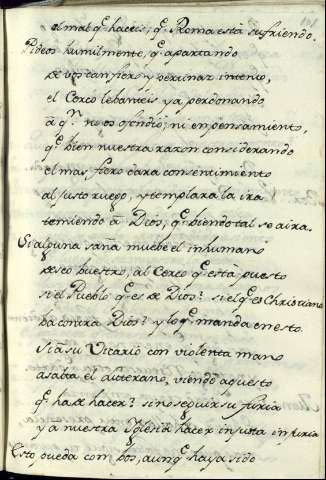 el mal q̃ haceis; q̃ Roma està sufriendo.
Pideos humilmente, q̃ apartando
de vos tan fiero y pertinaz intento,
el Cerco lebanteis, ya perdonando,
à q.ⁿ no os ofendiò, ni en pensamiento,
q̃ bien nuestra razon considerando
el mas fiero dara consentimiento
al justo ruego, y templara la ira
temiendo à Dios, q̃ viendo tal se aira.
Si alguna saña muebe el inhumano
deseo buestro, al Cerco q̃ està puesto
si el Pueblo q̃ es de Dios? si el q̃ es Christiano
ba contra Dios? y lo q̃ manda en esto
Si à su Vicario con violenta mano
asalta el Luterano, viendo aquesto
q̃ ha de hacer? sino seguir su furia
y a nuestra Yglesia hacer injusta injuria
Esto pueda con bos, aunq̃ haya sido